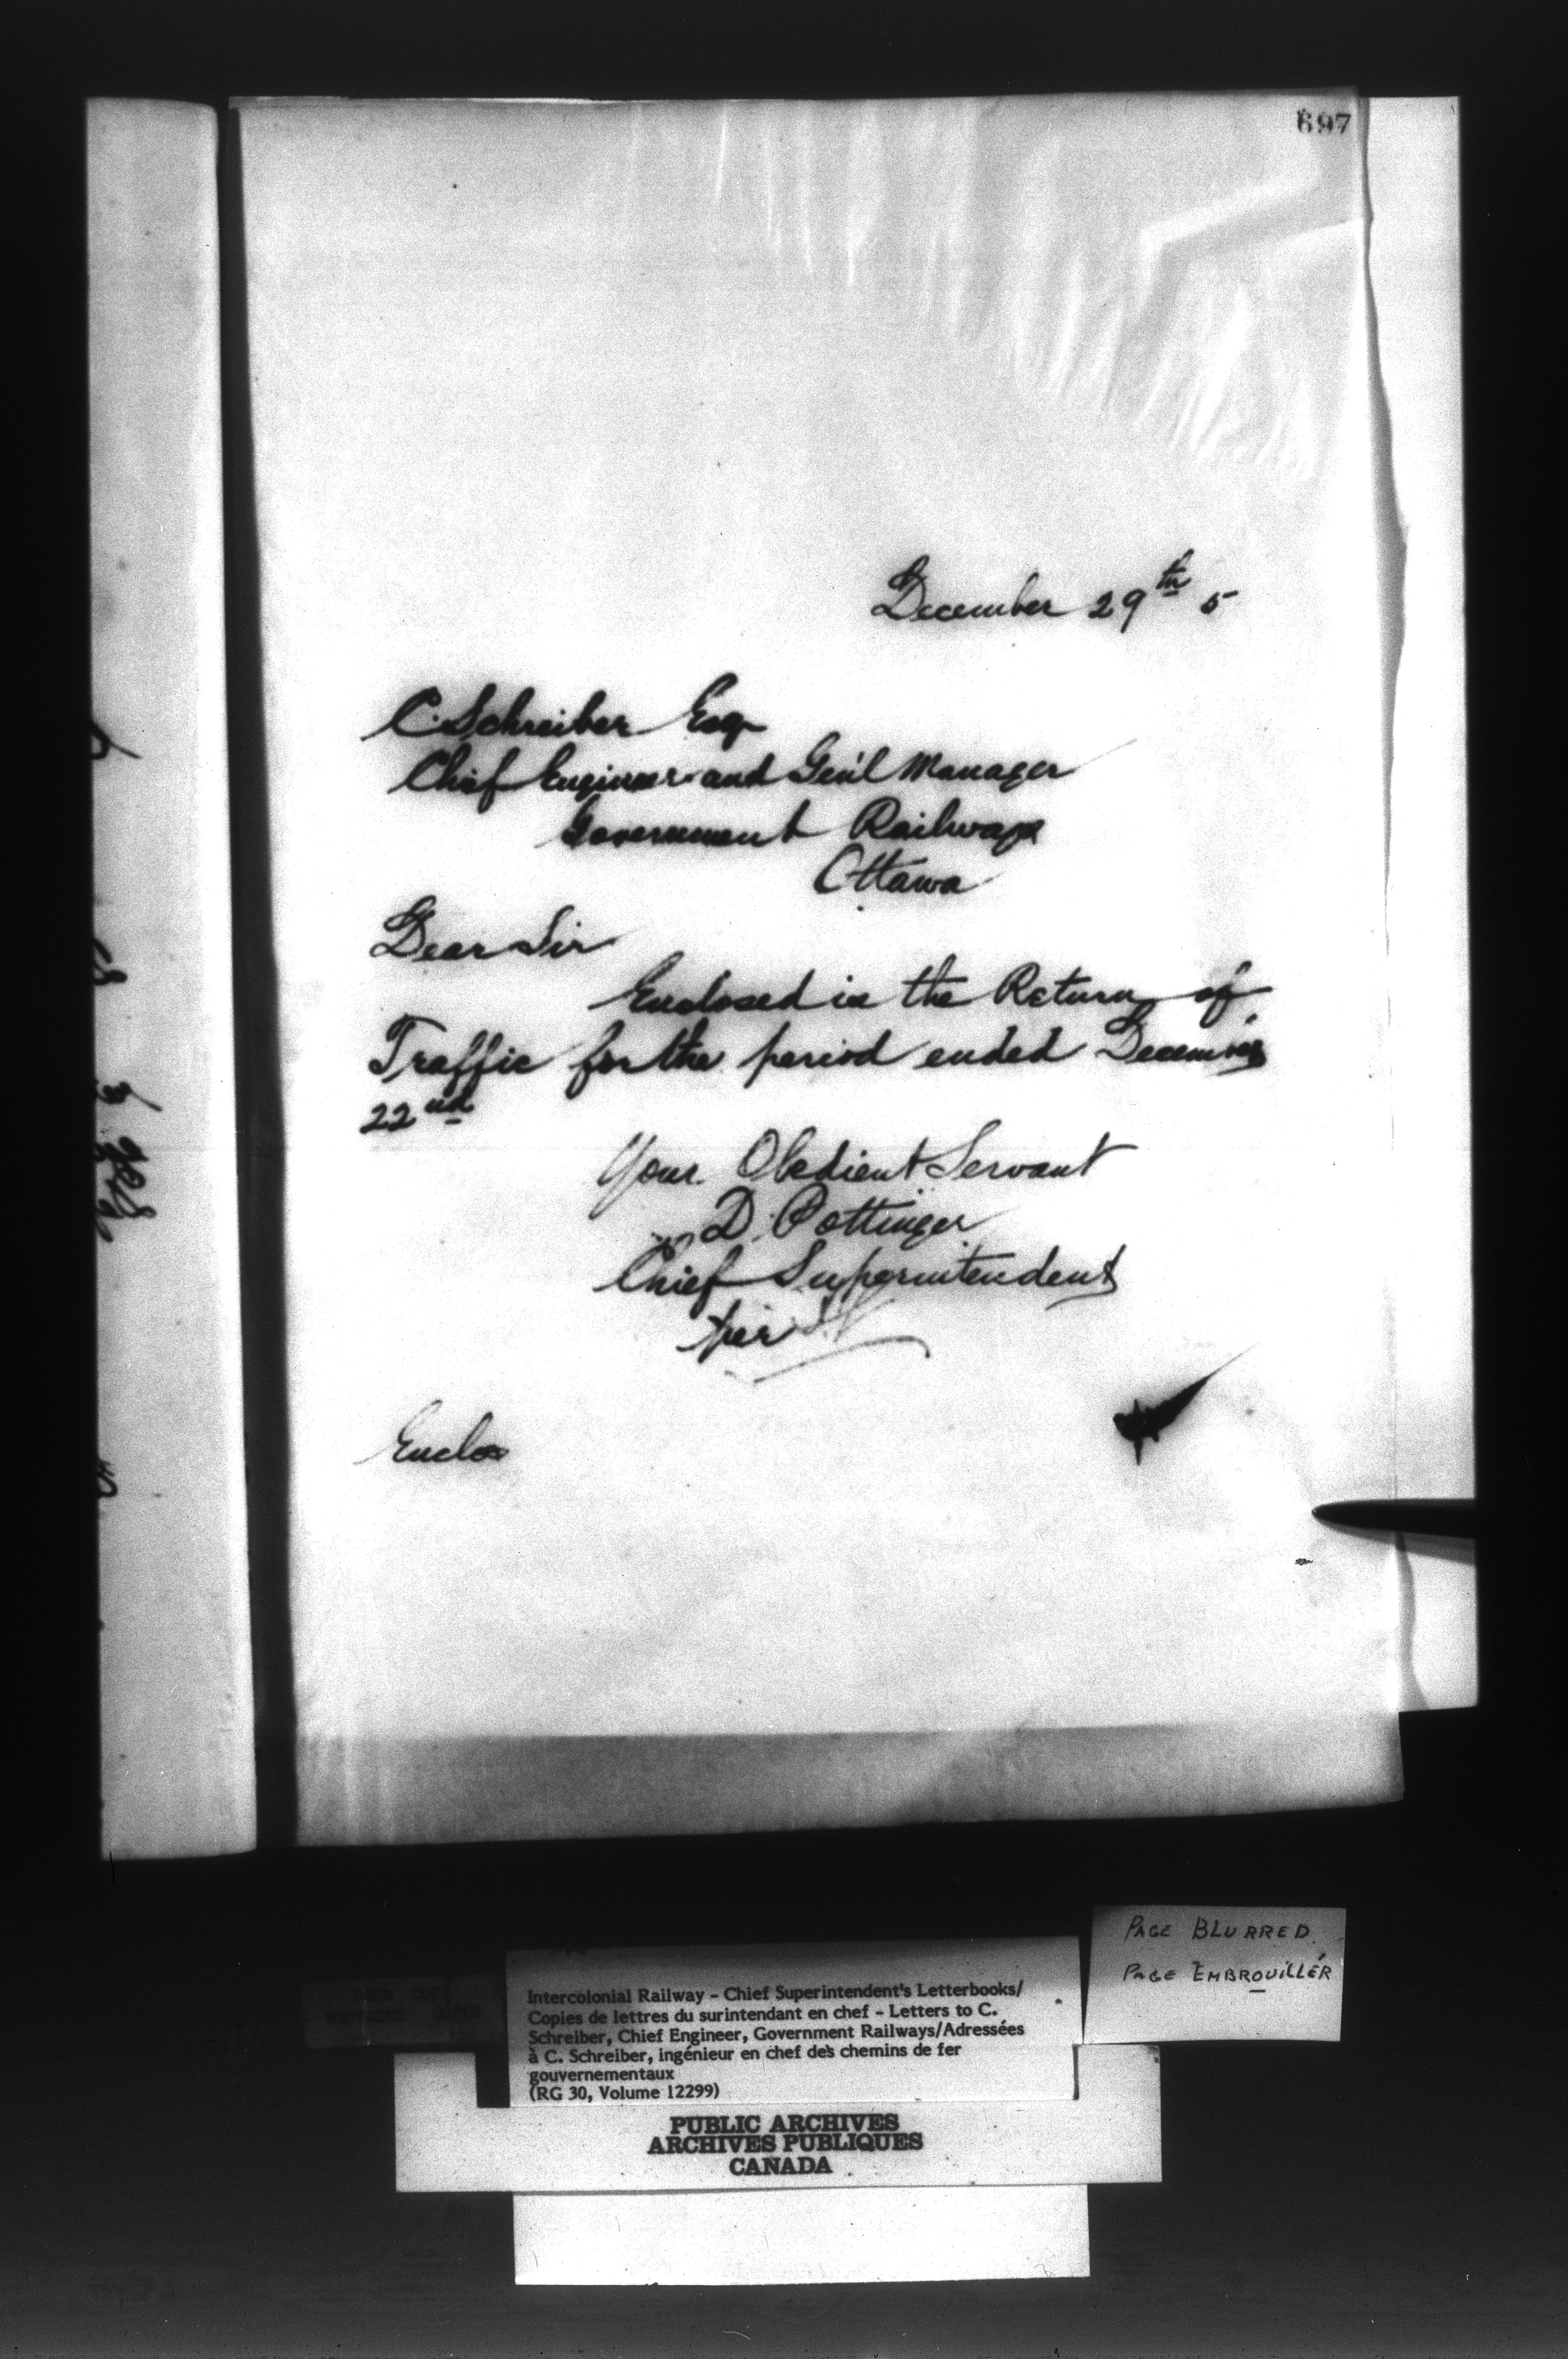 697
December 29th 5
C. Schreiber Esq
Chief Engineer and Gen'l Manager
Government Railways
Ottawa
Dear Sir
Enclosed is the Return of
Traffic for the period ended December
22nd
Your Obedient Servant
D. Pottinger
Chief Superintendent
per
Enclos
PAGE BLURRED.
PAGE EMBROUILLÉR
Intercolonial Railway - Chief Superintendent's Letterbooks/
Copies de lettres du surintendant en chef - Letters to C.
Schreiber, Chief Engineer, Government Railways/Adressées
à C. Schreiber, ingénieur en chef des chemins de fer
gouvernementaux
(RG 30, Volume 12299)
PUBLIC ARCHIVES
ARCHIVES PUBLIQUES
CANADA